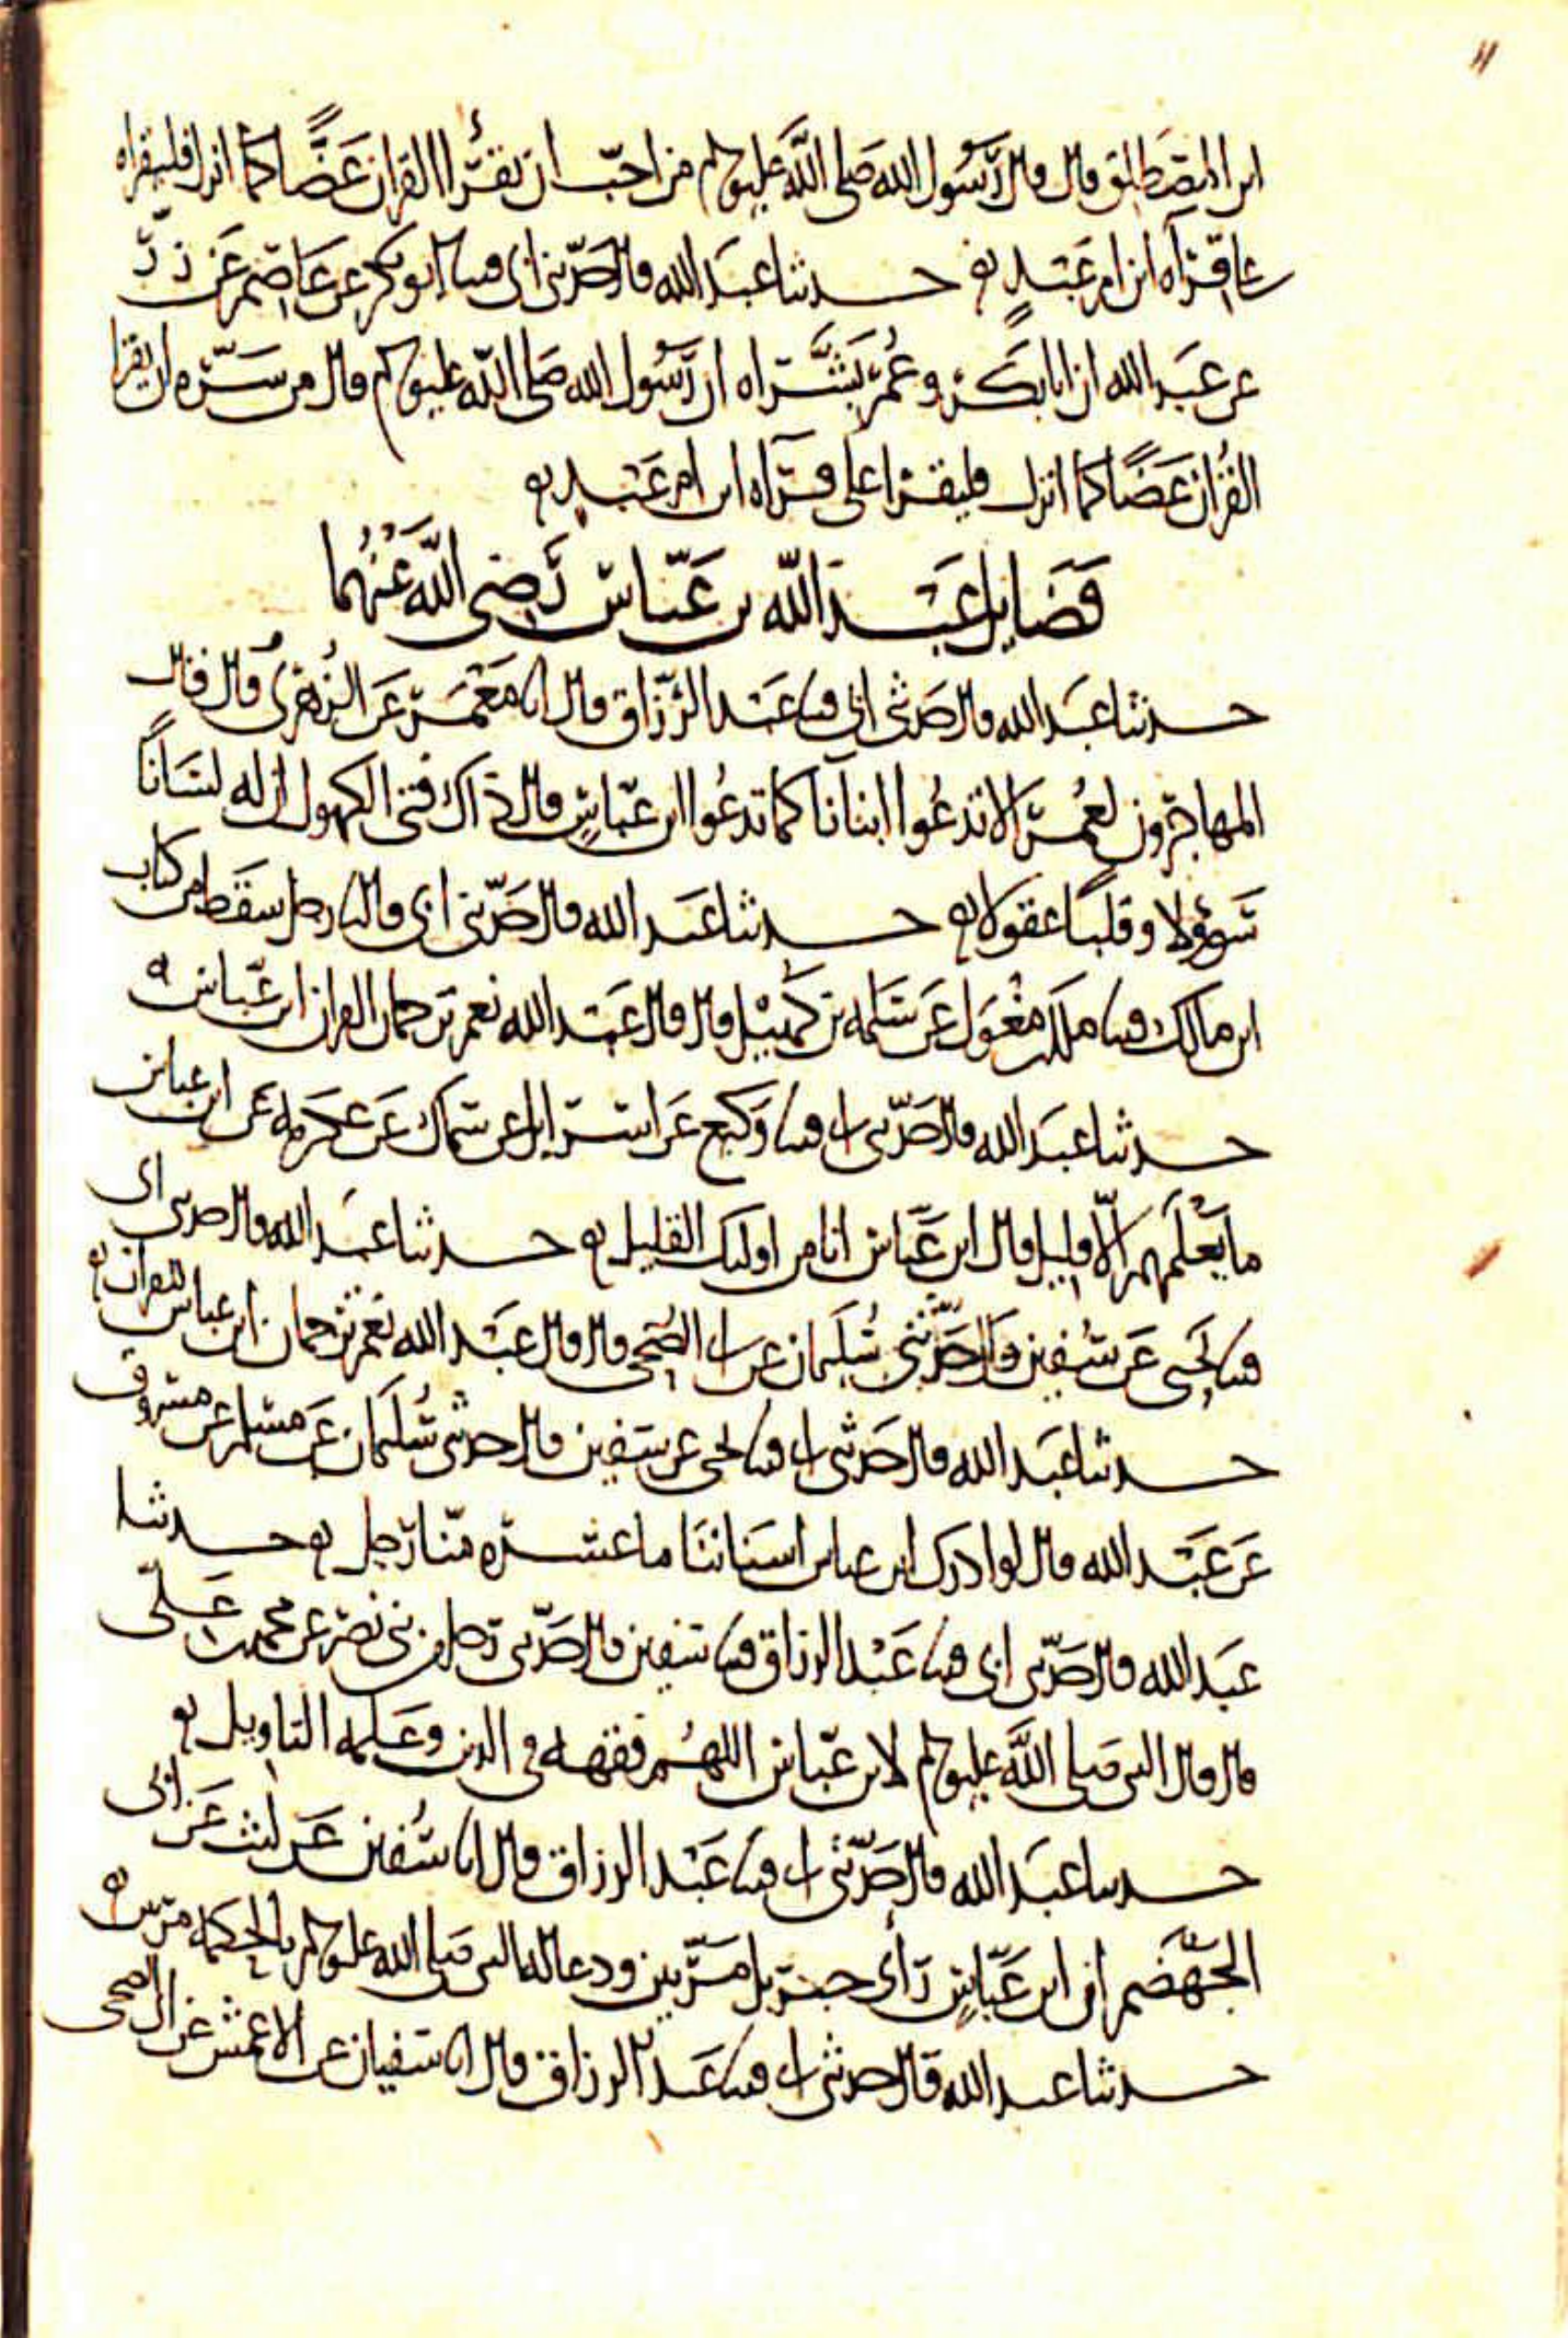 ١١
ابن المصطلق قال قال رسول الله صلى الله عليه وسلم من احب ان يقرا القران غضًّا كما انزل فليقراه
على قرآه ابن ام عبدٍ حدثنا عبد الله قال حدّثني ابي قثنا ابو بكر عن عاصم عن زرّ
عن عبد الله ان ابا بكر وعمر بشّراه ان رسول الله صلى الله عليه وسلم قال من سرّه ان يقرا
القرآن غضًّا كما انزل فليقرا على قرآه ابن ام عبدٍ
فضايل عبد الله بن عبّاس رضي الله عنهما
حدثنا عبد الله قال حدثني ابي قثنا عبد الرزّاق قال انا معمر عن الزهري قال قال
المهاجرون لعمر الا تدعُوا ابنانا كما تدعُوا ابن عبّاسٍ قال ذاك فتى الكهول ان له لسانًا
سَؤولا وقلبًا عقولا حدثنا عبد الله قال حدّثني ابي قال نا رجل سقط من كتاب
ابن مالك قثنا ملك بن مغول عن سلمه بن كهيل قال قال عبد الله نعم ترجمان القران ابن عبّاس
حدثنا عبد الله قال حدّثني ابي قثنا وكيع عن اسرايل عن سماك عن عكرمه عن ابن عباس
ما يعلمهم الّا قليل قال ابن عبّاس انا من اوليك القليل حدثنا عبد الله قال حدثني ابي
قثنا يحيى عن سفين قال حدّثني سُليمان عن ابي الضحى قال قال عبد الله نعم ترجمان ابن عباس للقران
حدثنا عبد الله قال حدثني ابي قثنا يحيى عن سفين قال حدثني سُليمان عن مسلم عن مسروق
عن عبد الله قال لو ادرك ابن عباس اسناننا ما عشره منّا رجل حدثنا
عبد الله قال حدّثني ابي قثنا عبد الرزاق قثنا سفين قال حدّثني رجل من بني نصر عن محمد بن علي
قال قال النبي صلى الله عليه وسلم لابن عبّاس اللهم فقهه في الدين وعلمه التاويل
حدثنا عبد الله قال حدّثني ابي قثنا عبد الرزاق قال انا سُفين عن ليث عن ابي
الجهضم ان ابن عبّاسٍ رأى جبريل مرّتين ودعا له النبي صلى الله عليه وسلم بالحكمه مرتين
حدثنا عبد الله قال حدثني ابي قثنا عبد الرزاق قال انا سفيان عن الاعمش عن ابي الضحى